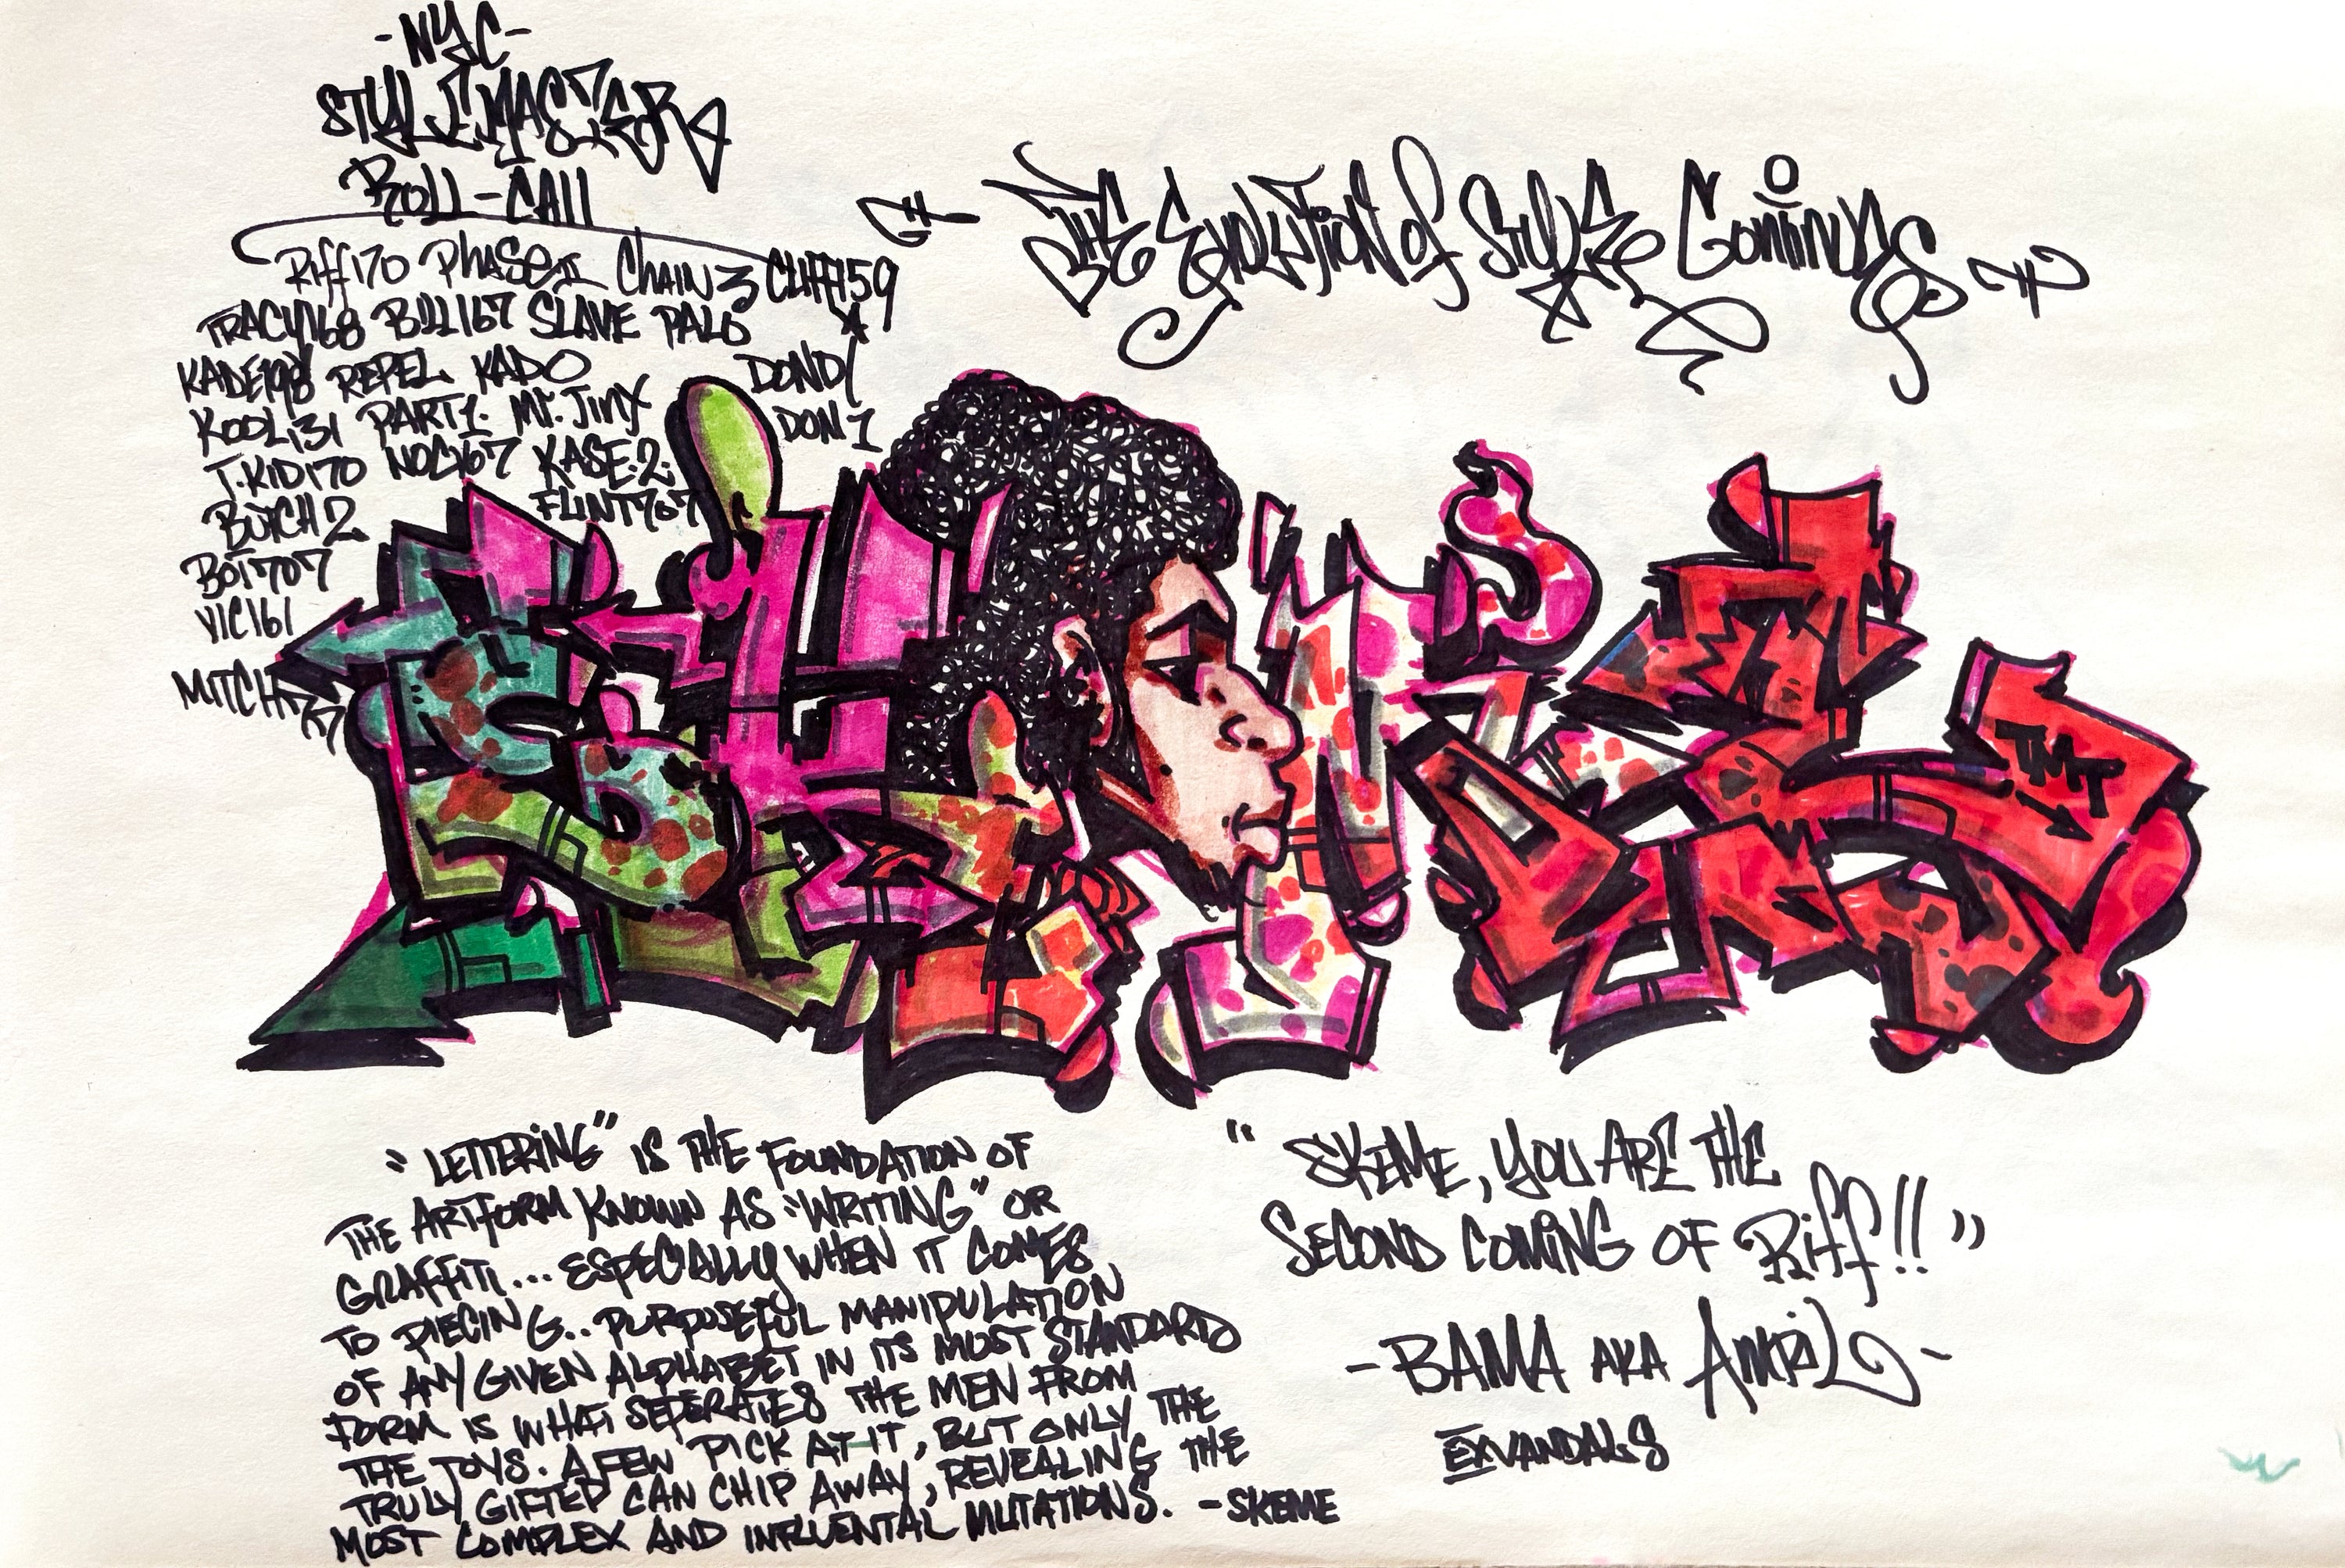 -NYC-
STYLEMASTER
ROLL-CALL
RIFF170 PHASEII CHAIN3 CLIFF159
TRACY168 BILL167 SLAVE PADO
KADE198 REPEL KADO DONDI
KOOL131 PART1. MR. JINX DON1
T.KID170 NOC167 KASE.2.
BUTCH2 FLINT707
BOT707
VIC161
MITCH77
THE EVOLUTION of STYLE Continues
SKEME
TMT
"LETTERING" IS THE FOUNDATION OF
THE ARTFORM KNOWN AS "WRITING" OR
GRAFFITI... ESPECIALLY WHEN IT COMES
TO PIECING.. PURPOSEFUL MANIPULATION
OF ANY GIVEN ALPHABET IN ITS MOST STANDARD
FORM IS WHAT SEPERATES THE MEN FROM
THE TOYS. A FEW PICK AT IT, BUT ONLY THE
TRULY GIFTED CAN CHIP AWAY, REVEALING THE
MOST COMPLEX AND INFLUENTAL MUTATIONS. -SKEME
"SKEME, YOU ARE THE
SECOND COMING OF Riff!!"
-BAMA AKA AMRIL-
EXVANDALS